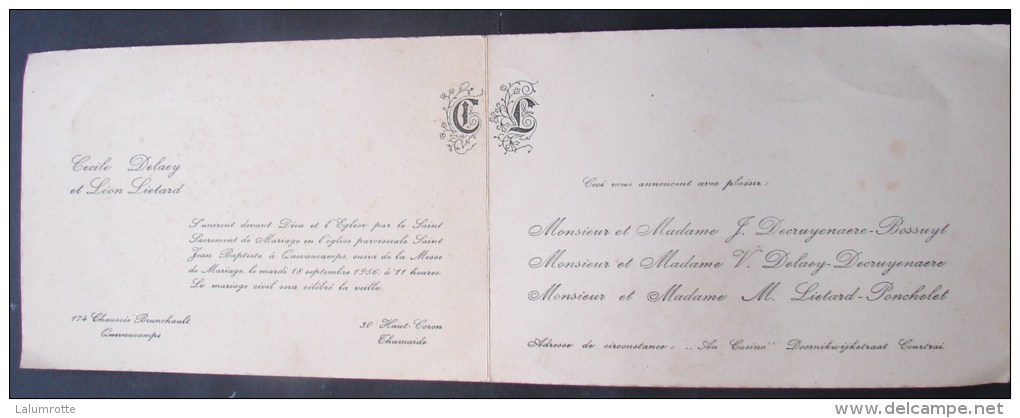 C L
Cecile Delaey
et Léon Lietard
S'uniront devant Dieu et l'Eglise par le Saint
Sacrement de Mariage en l'église paroissiale Saint
Jean Baptiste à Quevaucamps, suivi de la Messe
de Mariage, le mardi 18 septembre 1956, à 11 heures.
Le mariage civil sera célébré la veille.
174 Chaussée Brunehault
Quevaucamps
30 Haut-Coron
Thumaide
Ceci vous annoncent avec plaisir :
Monsieur et Madame J. Decruyenaere-Bossuyt
Monsieur et Madame V. Delaey-Decruyenaere
Monsieur et Madame M. Lietard-Ponchelet
Adresse de circonstance : „Au Casino" Doornikwijkstraat Courtrai.
Lalumrotte
delcampe.net